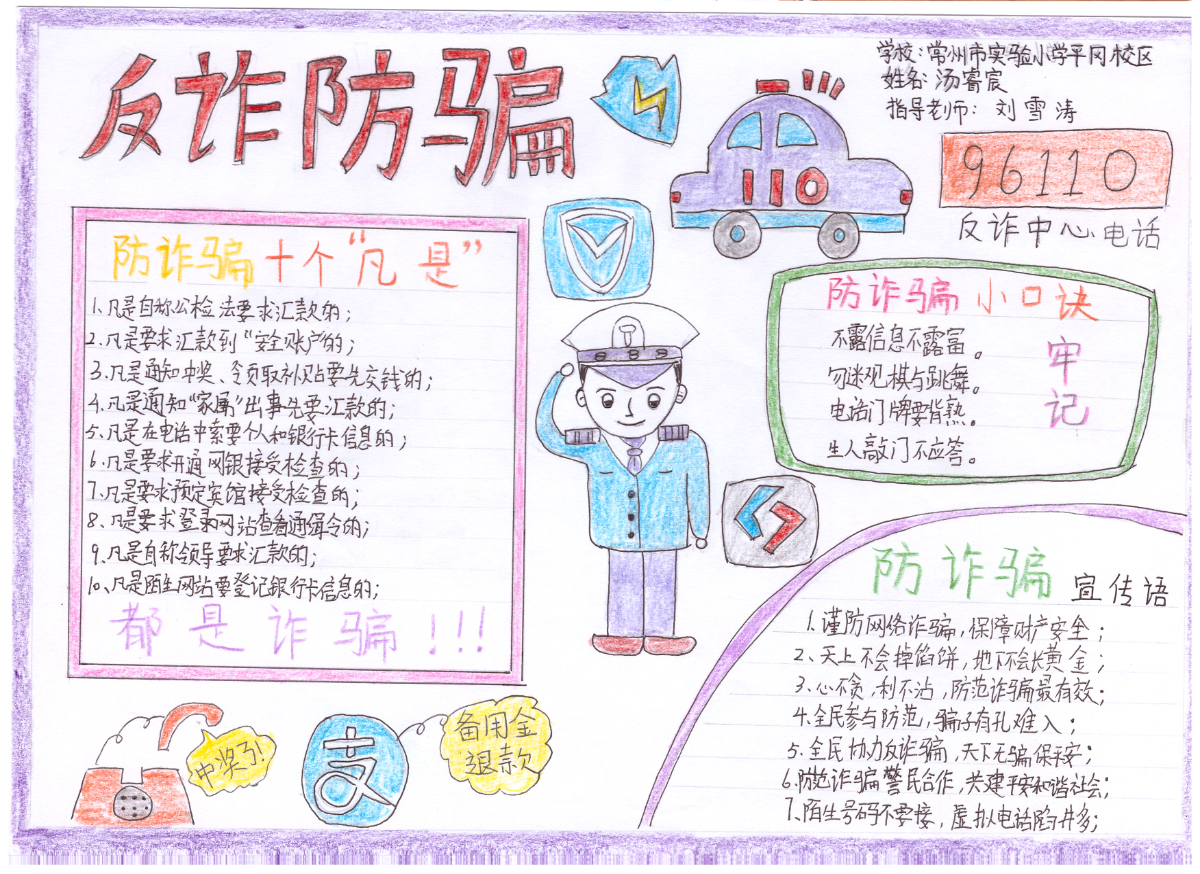 反诈防骗
学校:常州市实验小学平冈校区
姓名:汤睿宸
指导老师: 刘雪涛
110
96110
反诈中心电话
防诈骗十个“凡是”
1、凡是自称公检法要求汇款的;
2、凡是要求汇款到“安全账户”的;
3、凡是通知中奖、领取补贴要先交钱的;
4、凡是通知“家属”出事先要汇款的;
5、凡是在电话中索要个人和银行卡信息的;
6、凡是要求开通网银接受检查的;
7、凡是要求预定宾馆接受检查的;
8、凡是要求登录网站查看通缉令的;
9、凡是自称领导要求汇款的;
10、凡是陌生网站要登记银行卡信息的;
都是诈骗!!!
防诈骗小口诀
牢记
不露信息不露富。
勿迷观棋与跳舞。
电话门牌要背熟。
生人敲门不应答。
防诈骗宣传语
1、谨防网络诈骗,保障财产安全;
2、天上不会掉馅饼,地下不会长黄金;
3、心不贪,利不沾,防范诈骗最有效;
4、全民参与防范,骗子有孔难入;
5、全民协力反诈骗,天下无骗保平安;
6、防范诈骗警民合作,共建平安和谐社会;
7、陌生号码不要接,虚拟电话陷井多;
中奖了!
支
备用金
退款